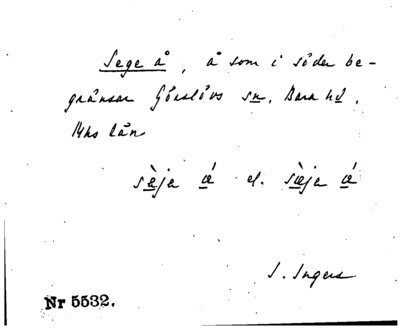 Sege å, å som i söder be-
gränsar Görslövs sn, Bara hd,
Mhs län
sèja á el. sèja á
I. Ingers
Nr 5532.